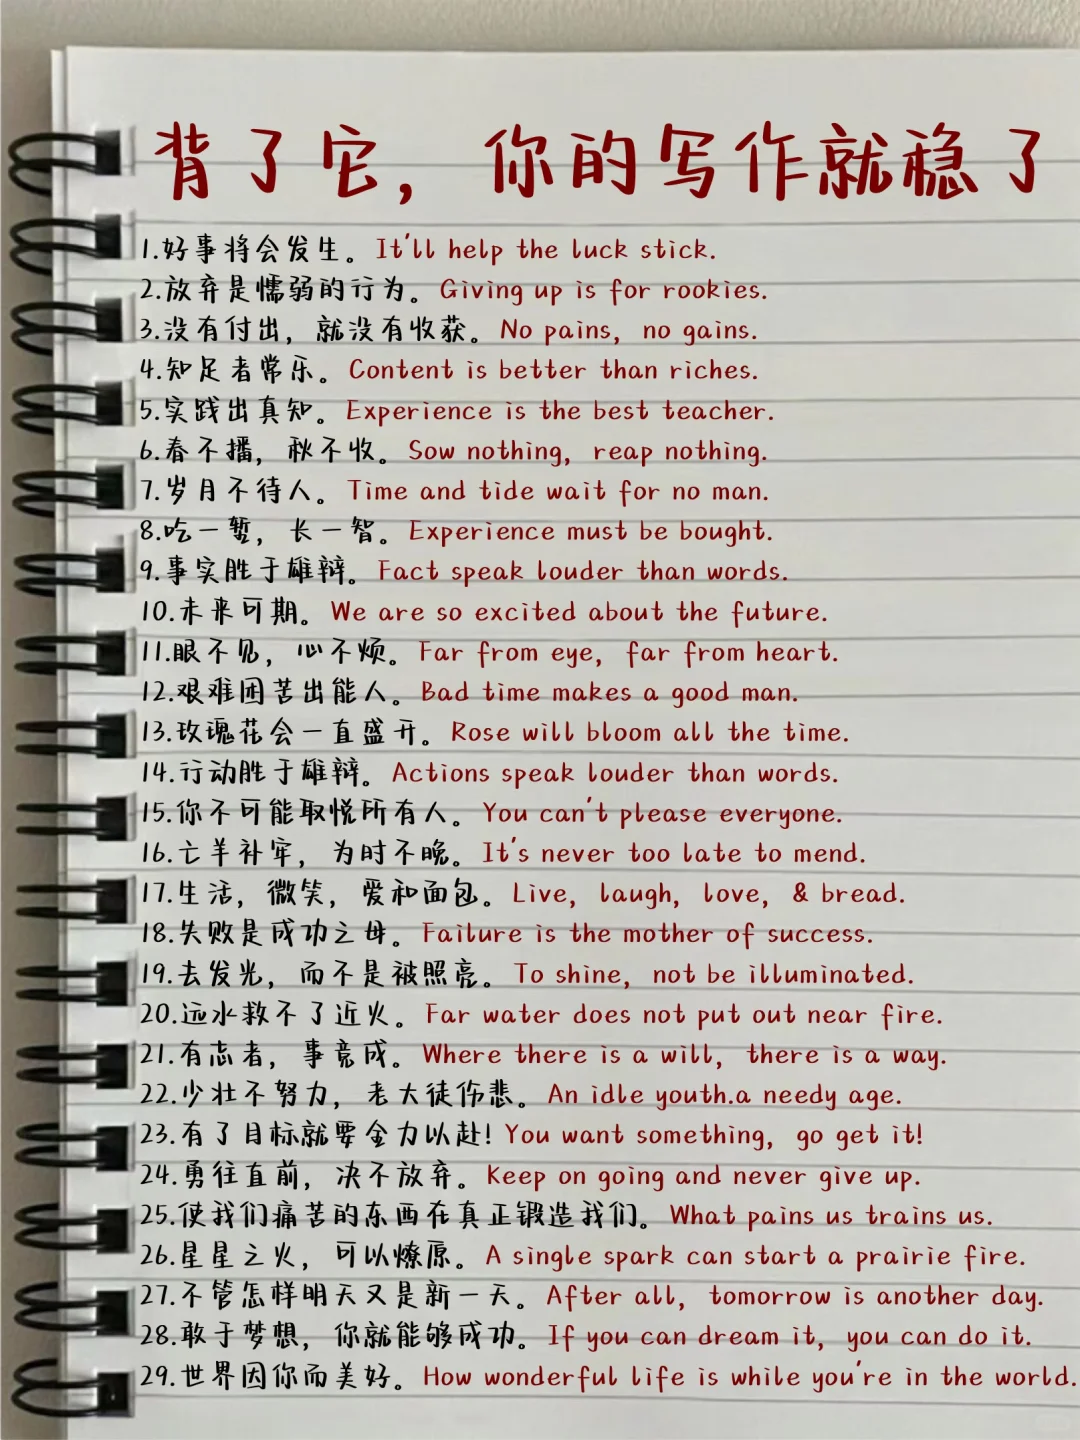 背了它，你的写作就稳了
1.好事将会发生。It'll help the luck stick.
2.放弃是懦弱的行为。Giving up is for rookies.
3.没有付出，就没有收获。No pains, no gains.
4.知足者常乐。Content is better than riches.
5.实践出真知。Experience is the best teacher.
6.春不播，秋不收。Sow nothing, reap nothing.
7.岁月不待人。Time and tide wait for no man.
8.吃一堑，长一智。Experience must be bought.
9.事实胜于雄辩。Fact speak louder than words.
10.未来可期。We are so excited about the future.
11.眼不见，心不烦。Far from eye, far from heart.
12.艰难困苦出能人。Bad time makes a good man.
13.玫瑰花会一直盛开。Rose will bloom all the time.
14.行动胜于雄辩。Actions speak louder than words.
15.你不可能取悦所有人。You can't please everyone.
16.亡羊补牢，为时不晚。It's never too late to mend.
17.生活，微笑，爱和面包。Live, laugh, love, & bread.
18.失败是成功之母。Failure is the mother of success.
19.去发光，而不是被照亮。To shine, not be illuminated.
20.远水救不了近火。Far water does not put out near fire.
21.有志者，事竟成。Where there is a will, there is a way.
22.少壮不努力，老大徒伤悲。An idle youth.a needy age.
23.有了目标就要全力以赴！You want something, go get it!
24.勇往直前，决不放弃。Keep on going and never give up.
25.使我们痛苦的东西在真正锻造我们。What pains us trains us.
26.星星之火，可以燎原。A single spark can start a prairie fire.
27.不管怎样明天又是新一天。After all, tomorrow is another day.
28.敢于梦想，你就能够成功。If you can dream it, you can do it.
29.世界因你而美好。How wonderful life is while you're in the world.